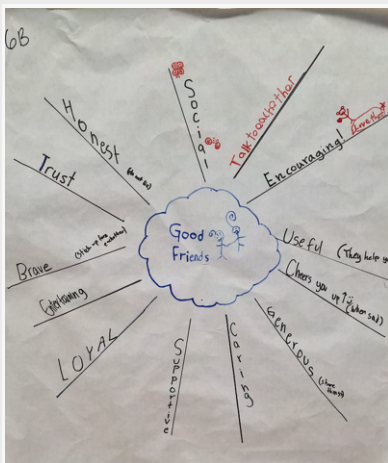 6B
Good
Friends
Social
Talk to eachother
Encouraging!
Useful (They help you
Cheers you up! (when sad)
Generous (share
Caring
Supportive
LOYAL
Entertaining
Brave (stick up for
eachother)
Trust
Honest